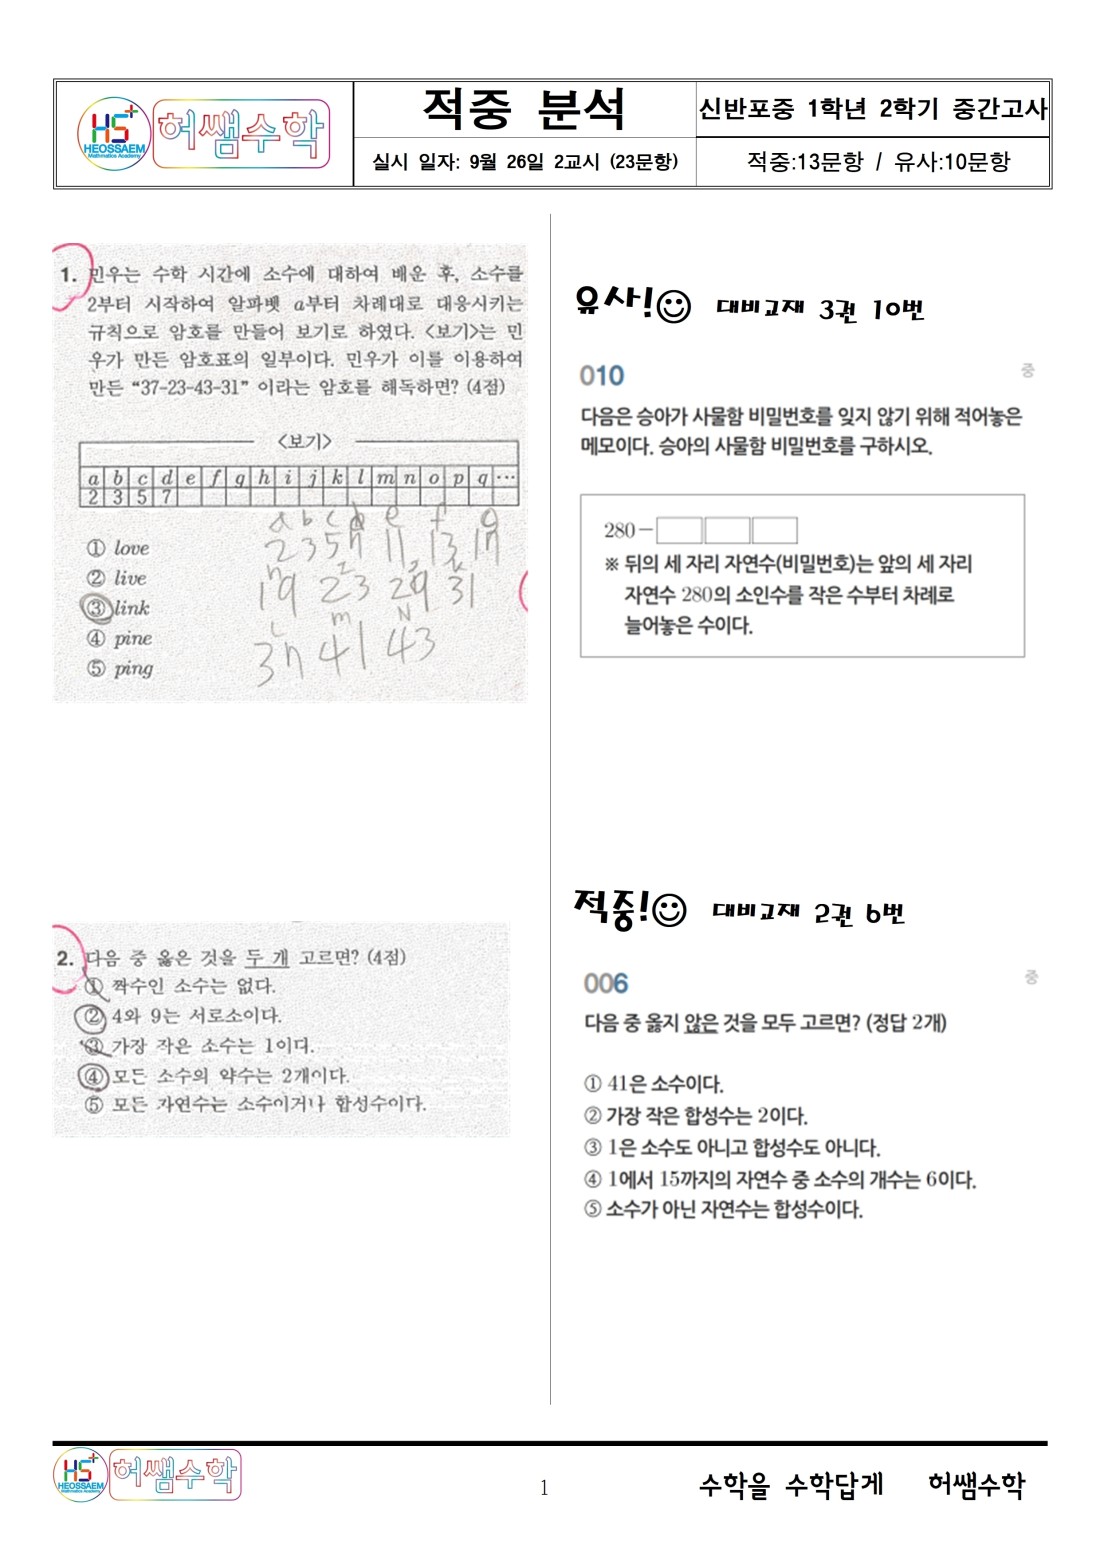 HS+
HEOSSAEM
Mathematics Academy
허쌤수학
적중 분석
실시 일자: 9월 26일 2교시 (23문항)
신반포중 1학년 2학기 중간고사
적중:13문항 / 유사:10문항
1. 민우는 수학 시간에 소수에 대하여 배운 후, 소수를
2부터 시작하여 알파벳 a부터 차례대로 대응시키는
규칙으로 암호를 만들어 보기로 하였다. <보기>는 민
우가 만든 암호표의 일부이다. 민우가 이를 이용하여
만든 “37-23-43-31” 이라는 암호를 해독하면? (4점)
<보기>
a b c d e f g h i j k l m n o p q ⋯
2 3 5 7
① love
② live
③ link
④ pine
⑤ ping
a b c d e f g
2 3 5 7 11 13 17
h I J K
19 23 29 31
L m N
37 41 43
유사!
대비교재 3권 10번
010
중
다음은 승아가 사물함 비밀번호를 잊지 않기 위해 적어놓은
메모이다. 승아의 사물함 비밀번호를 구하시오.
280 -
※ 뒤의 세 자리 자연수(비밀번호)는 앞의 세 자리
자연수 280의 소인수를 작은 수부터 차례로
늘어놓은 수이다.
2. 다음 중 옳은 것을 두 개 고르면? (4점)
① 짝수인 소수는 없다.
② 4와 9는 서로소이다.
③ 가장 작은 소수는 1이다.
④ 모든 소수의 약수는 2개이다.
⑤ 모든 자연수는 소수이거나 합성수이다.
적중!
대비교재 2권 6번
006
중
다음 중 옳지 않은 것을 모두 고르면? (정답 2개)
① 41은 소수이다.
② 가장 작은 합성수는 2이다.
③ 1은 소수도 아니고 합성수도 아니다.
④ 1에서 15까지의 자연수 중 소수의 개수는 6이다.
⑤ 소수가 아닌 자연수는 합성수이다.
HS+
HEOSSAEM
Mathematics Academy
허쌤수학
1
수학을 수학답게 허쌤수학